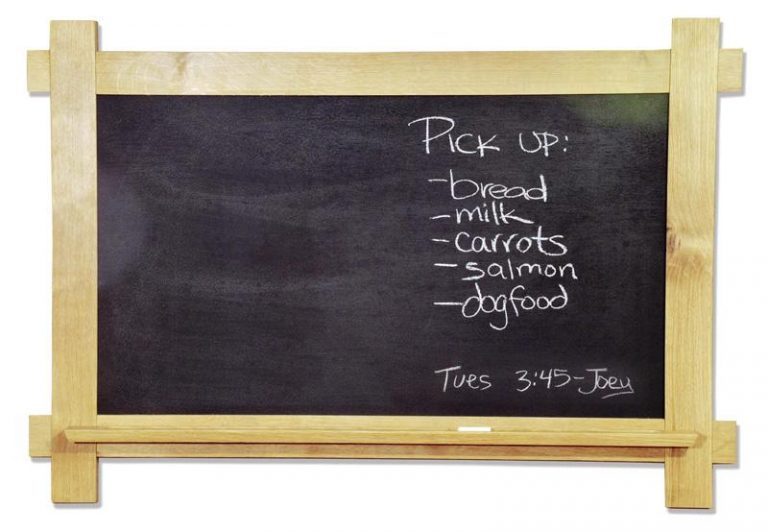 Pick up:
-bread
-milk
-carrots
-salmon
-dogfood
Tues 3:45-Joey